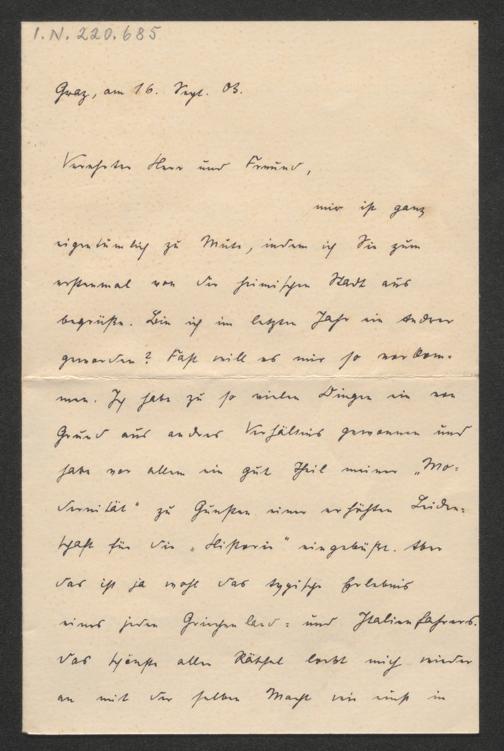 I.N. 220.685
Graz, am 16. Sept. 03.
Verehrter Herr und Freund,
mir ist ganz
eigentümlich zu Mute, indem ich Sie zum
erstenmal von der heimischen Stadt aus
begrüße. Bin ich im letzten Jahr ein Andrer
geworden? Fast will es mir so vorkom-
men. Ich habe zu so vielen Dingen ein von
Grund aus andres Verhältnis gewonnen und
habe vor allem ein gut Theil meiner „Mo-
dernität" zu Gunsten einer erhöhten Leiden-
schaft für die „Historie" eingebüßt. Aber
das ist ja wohl das typische Erlebnis
eines jeden Griechenland- und Italienfahrers.
Das schönste aller Rätsel lockt mich wieder
an mit der selben Macht wie einst in